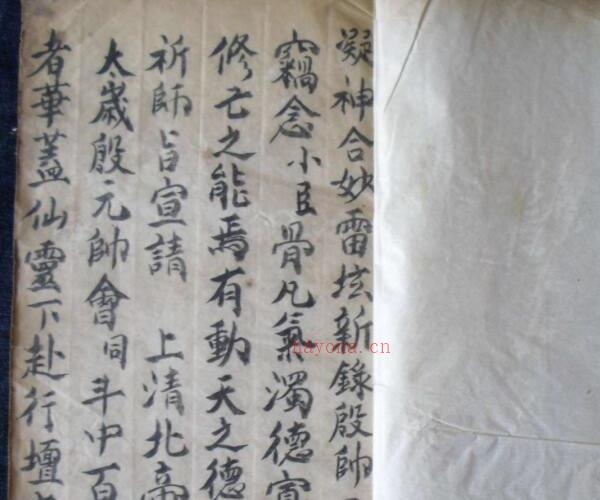 凝神合妙雷坛新錄殷帥
竊念小臣骨凡氣濁德寡
修亡之能焉有動天之德
祈師旨宣請 上清北帝
太歲殷元帥會同斗中百
者華蓋仙靈下赴行壇
nayona.cn